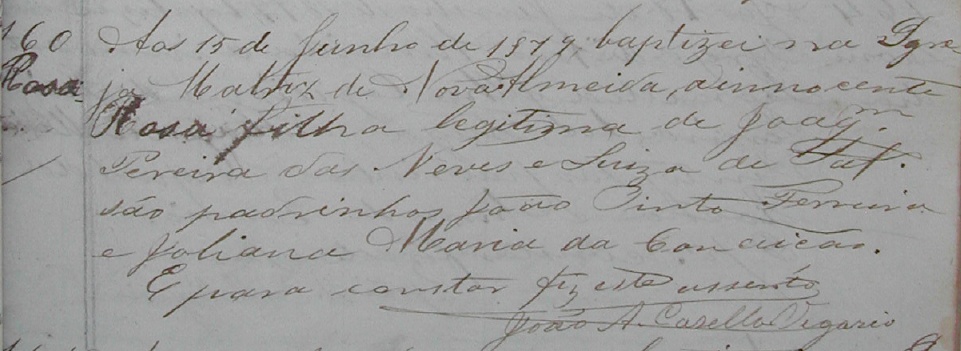 160 Aos 15 de Junho de 1879 baptizei na Igre-
Rosa ja Matriz de Nova Almeida, a innocente
Rosa filha legitima de Joaqm.
Pereira das Neves e Luiza de Tal.
são padrinhos João Pinto Ferreira
e Juliana Maria da Conceicão.
E para constar fiz este assento
João A. Casella Vigario